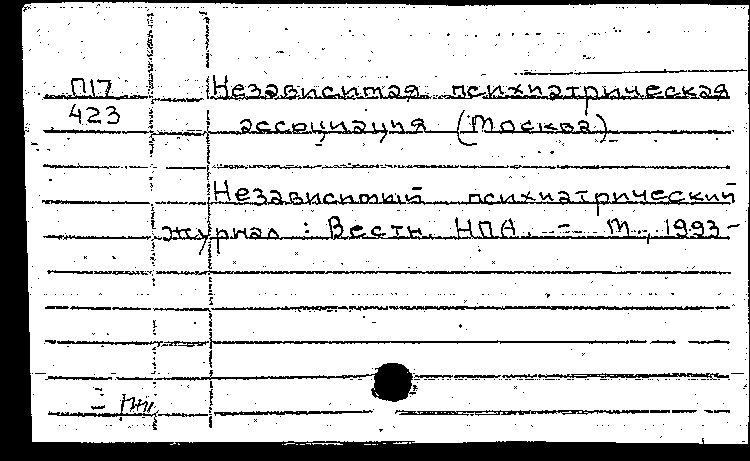 П17 Независимая психиатрическая
423 ассоциация (Москва)
Независимый психиатрический
журнал : Вестн. НПА. – М., 1993-